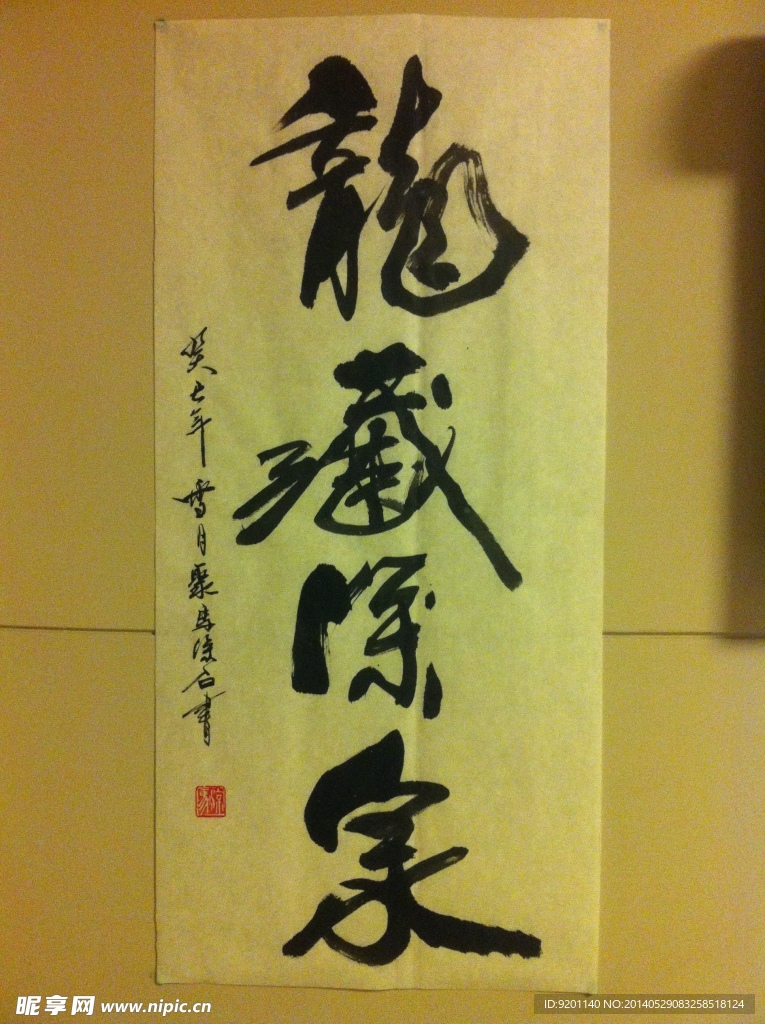 龍藏深泉
癸巳年雪月聚石書
昵享网 www.nipic.cn
ID:9201140 NO:20140529083258518124